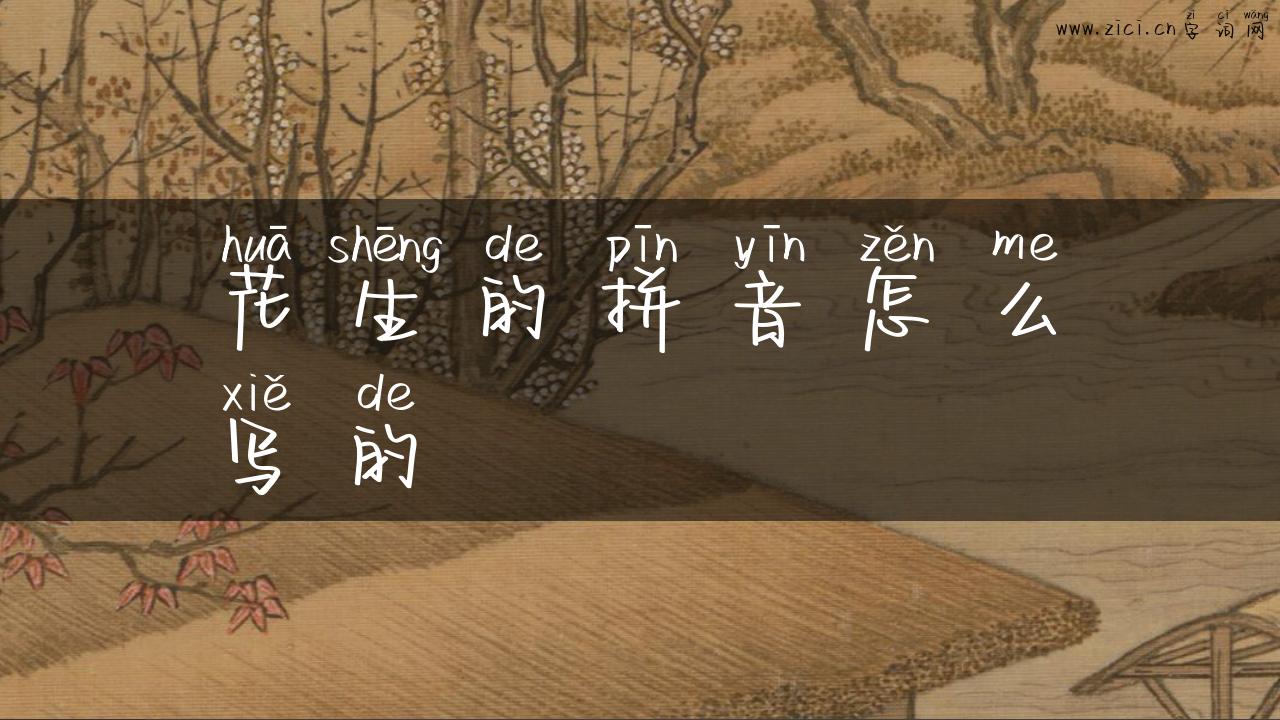 zì cí wǎng
www.zici.cn 字 词 网
huā shēng de pīn yīn zěn me
花 生 的 拼 音 怎 么
xiě de
写 的